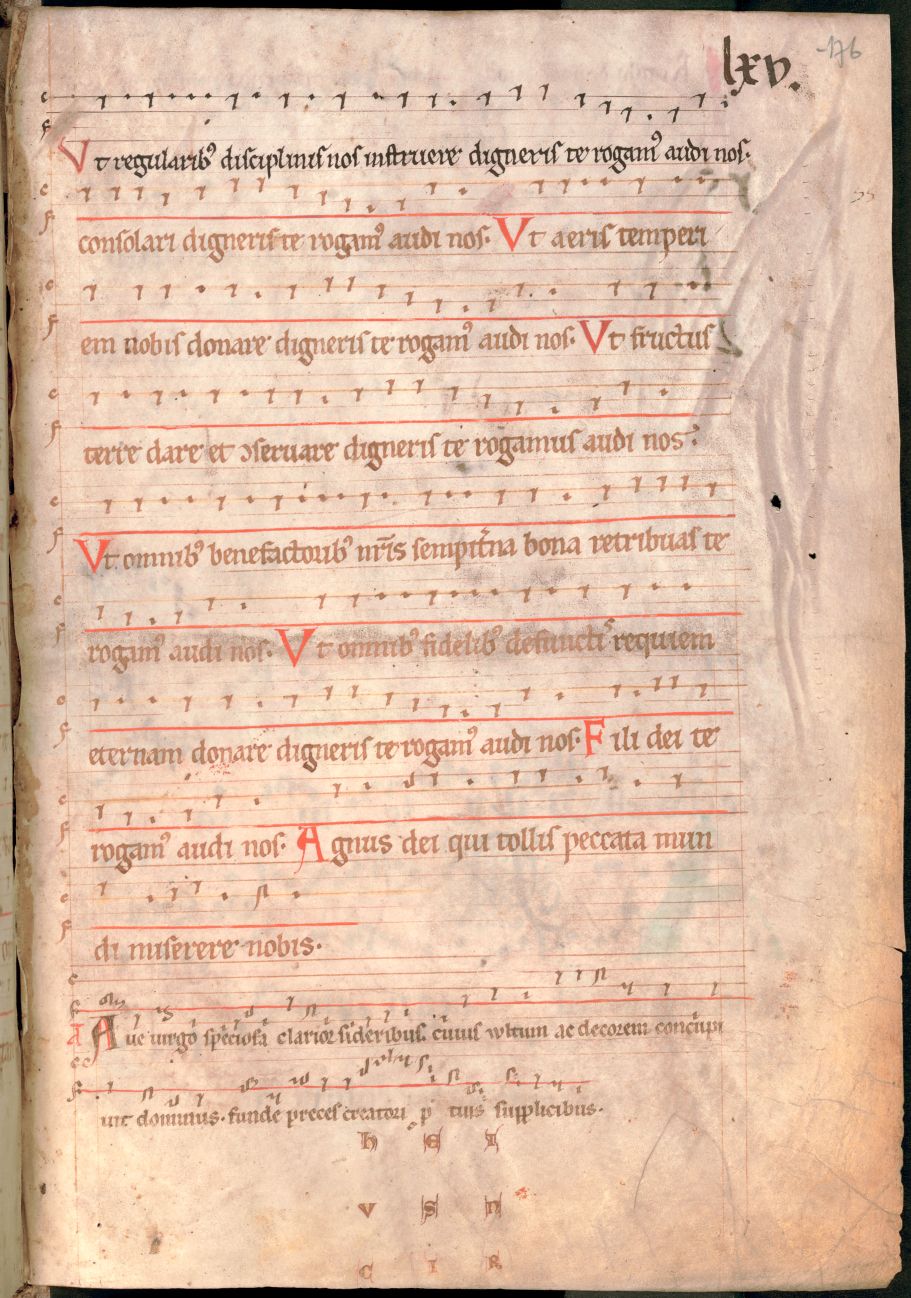 lxv.
176
Vt regularib⁹ disciplinis nos instruere digneris te rogam⁹ audi nos.
consolari digneris te rogam⁹ audi nos. Vt aeris temperi
em nobis donare digneris te rogam⁹ audi nos. Vt fructus
terre dare et ↄseruare digneris te rogamus audi nos.
Vt omnib⁹ benefactorib⁹ nr̄is sempit̄na bona retribuas te
rogam⁹ audi nos. Vt omnib⁹ fidelib⁹ defunctis requiem
eternam donare digneris te rogam⁹ audi nos. Fili dei te
rogam⁹ audi nos. Agnus dei qui tollis peccata mun
di miserere nobis.
Aue uirgo speciosa clarior sideribus. cuius uultum ac decorem concupi
uit dominus. funde preces creatori p tuis supplicibus.
h E I
v S n
C I R